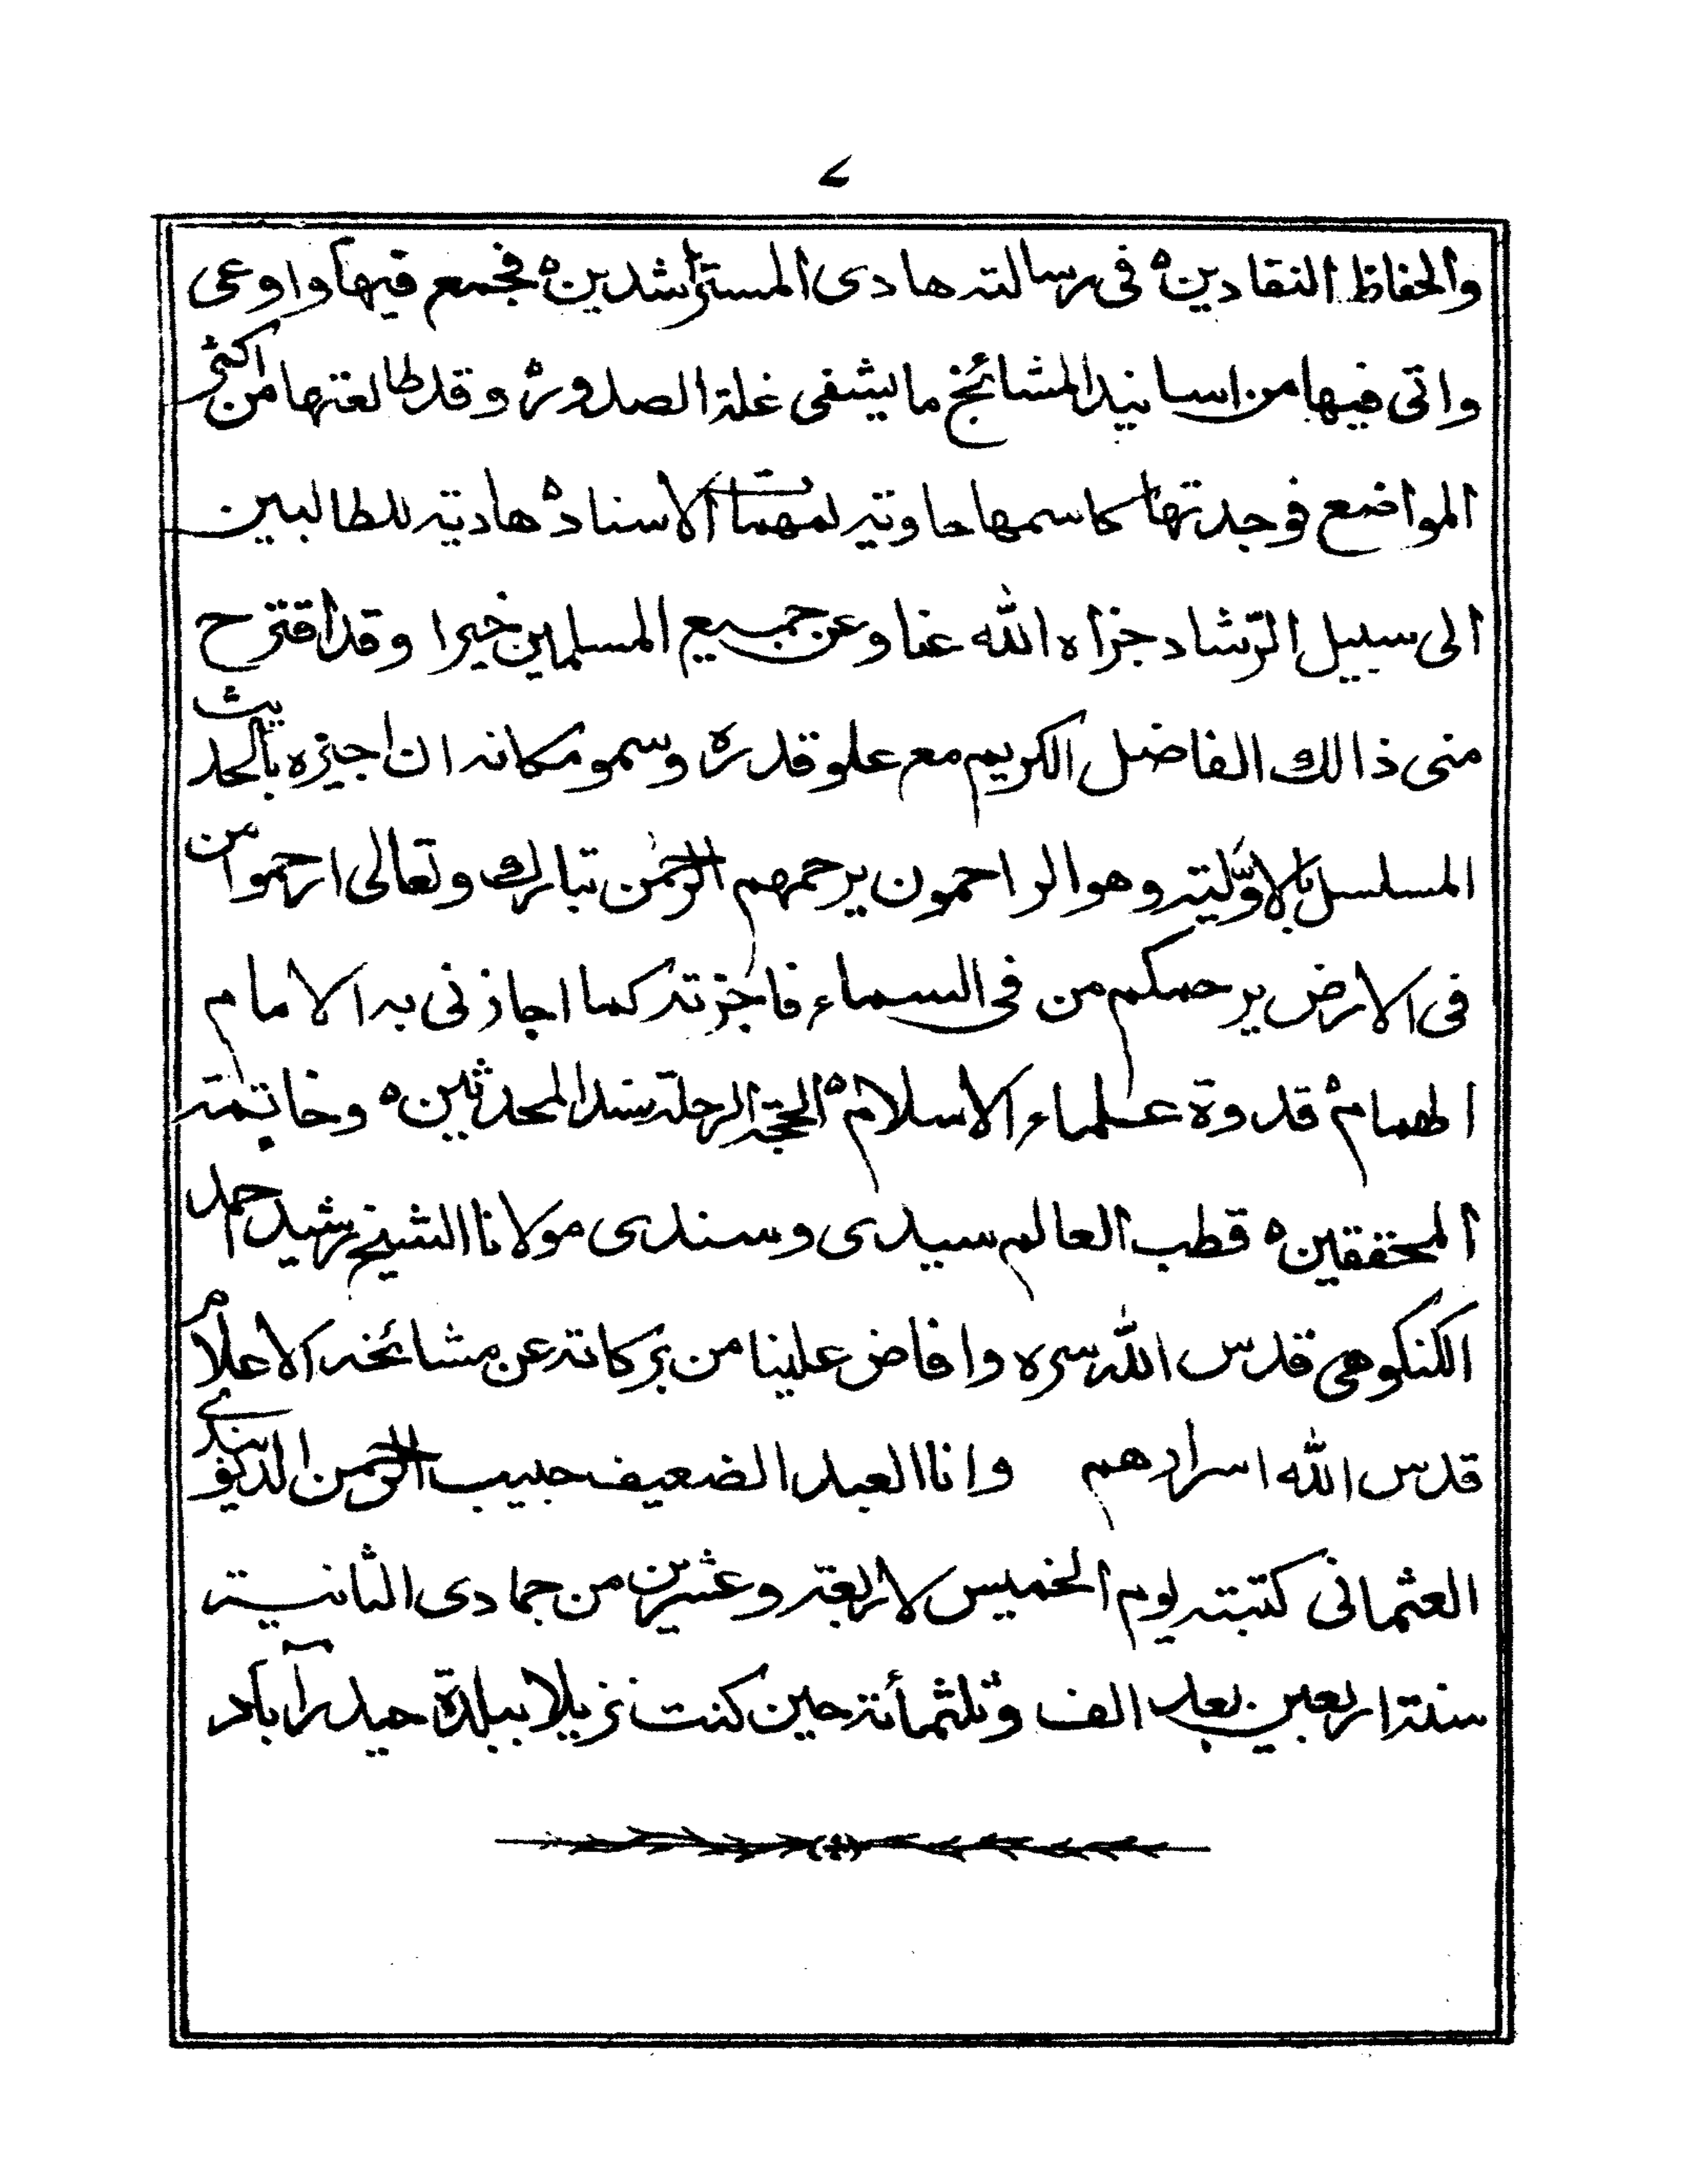 ۷
والحفاظ النقادین ہ فی رسالتہ ھادی المسترشدین ہ فجمع فیھا واوعی
واتی فیھا من اسانید المشائخ ما یشفی غلۃ الصدور ہ وقد طالعتھا من اکثر
المواضع فوجدتھا کاسمھا حاویۃ لمھمات الاسناد ہ ھادیۃ للطالبین
الی سبیل الرشاد جزاہ اللہ عنا وعن جمیع المسلمین خیرا وقد اقترح
منی ذالک الفاضل الکریم مع علو قدرہ وسمو مکانہ ان اجیزہ بالحدیث
المسلسل بالاوّلیۃ وھو الراحمون یرحمھم الرحمٰن تبارک وتعالی ارحموا من
فی الارض یرحمکم من فی السماء فاجزتہ کما اجازنی بہ الامام
الھمام ہ قدوۃ علماء الاسلام ہ الحجۃ الرحلۃ سند المحدثین ہ وخاتمۃ
المحققین ہ قطب العالم سیدی وسندی مولانا الشیخ رشید احمد
الکنکوھی قدس اللہ سرہ وافاض علینا من برکاتہ عن مشائخہ الاعلام
قدس اللہ اسرارھم وانا العبد الضعیف حبیب الرحمن الدیوبندی
العثمانی کتبتہ یوم الخمیس لاربعۃ وعشرین من جمادی الثانیۃ
سنۃ اربعین بعد الف وثلثمأۃ حین کنت نزیلا ببلدۃ حیدرآباد